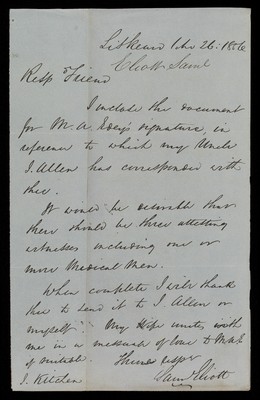 Liskeard 1 mo 26: 1856
Eliott Saml
Resp Friend
I inclose the document
for M. A. Edey's signature, in
reference to which my Uncle
J. Allen has corresponded with
thee.
It would be desirable that
there should be three attesting
witnesses including one or
more Medical Men.
When complete I will thank
thee to send it to J. Allen or
myself. My Wife unites with
me in a message of love to
if suitable. Thine resply
J. Kitchen
Saml Eliott